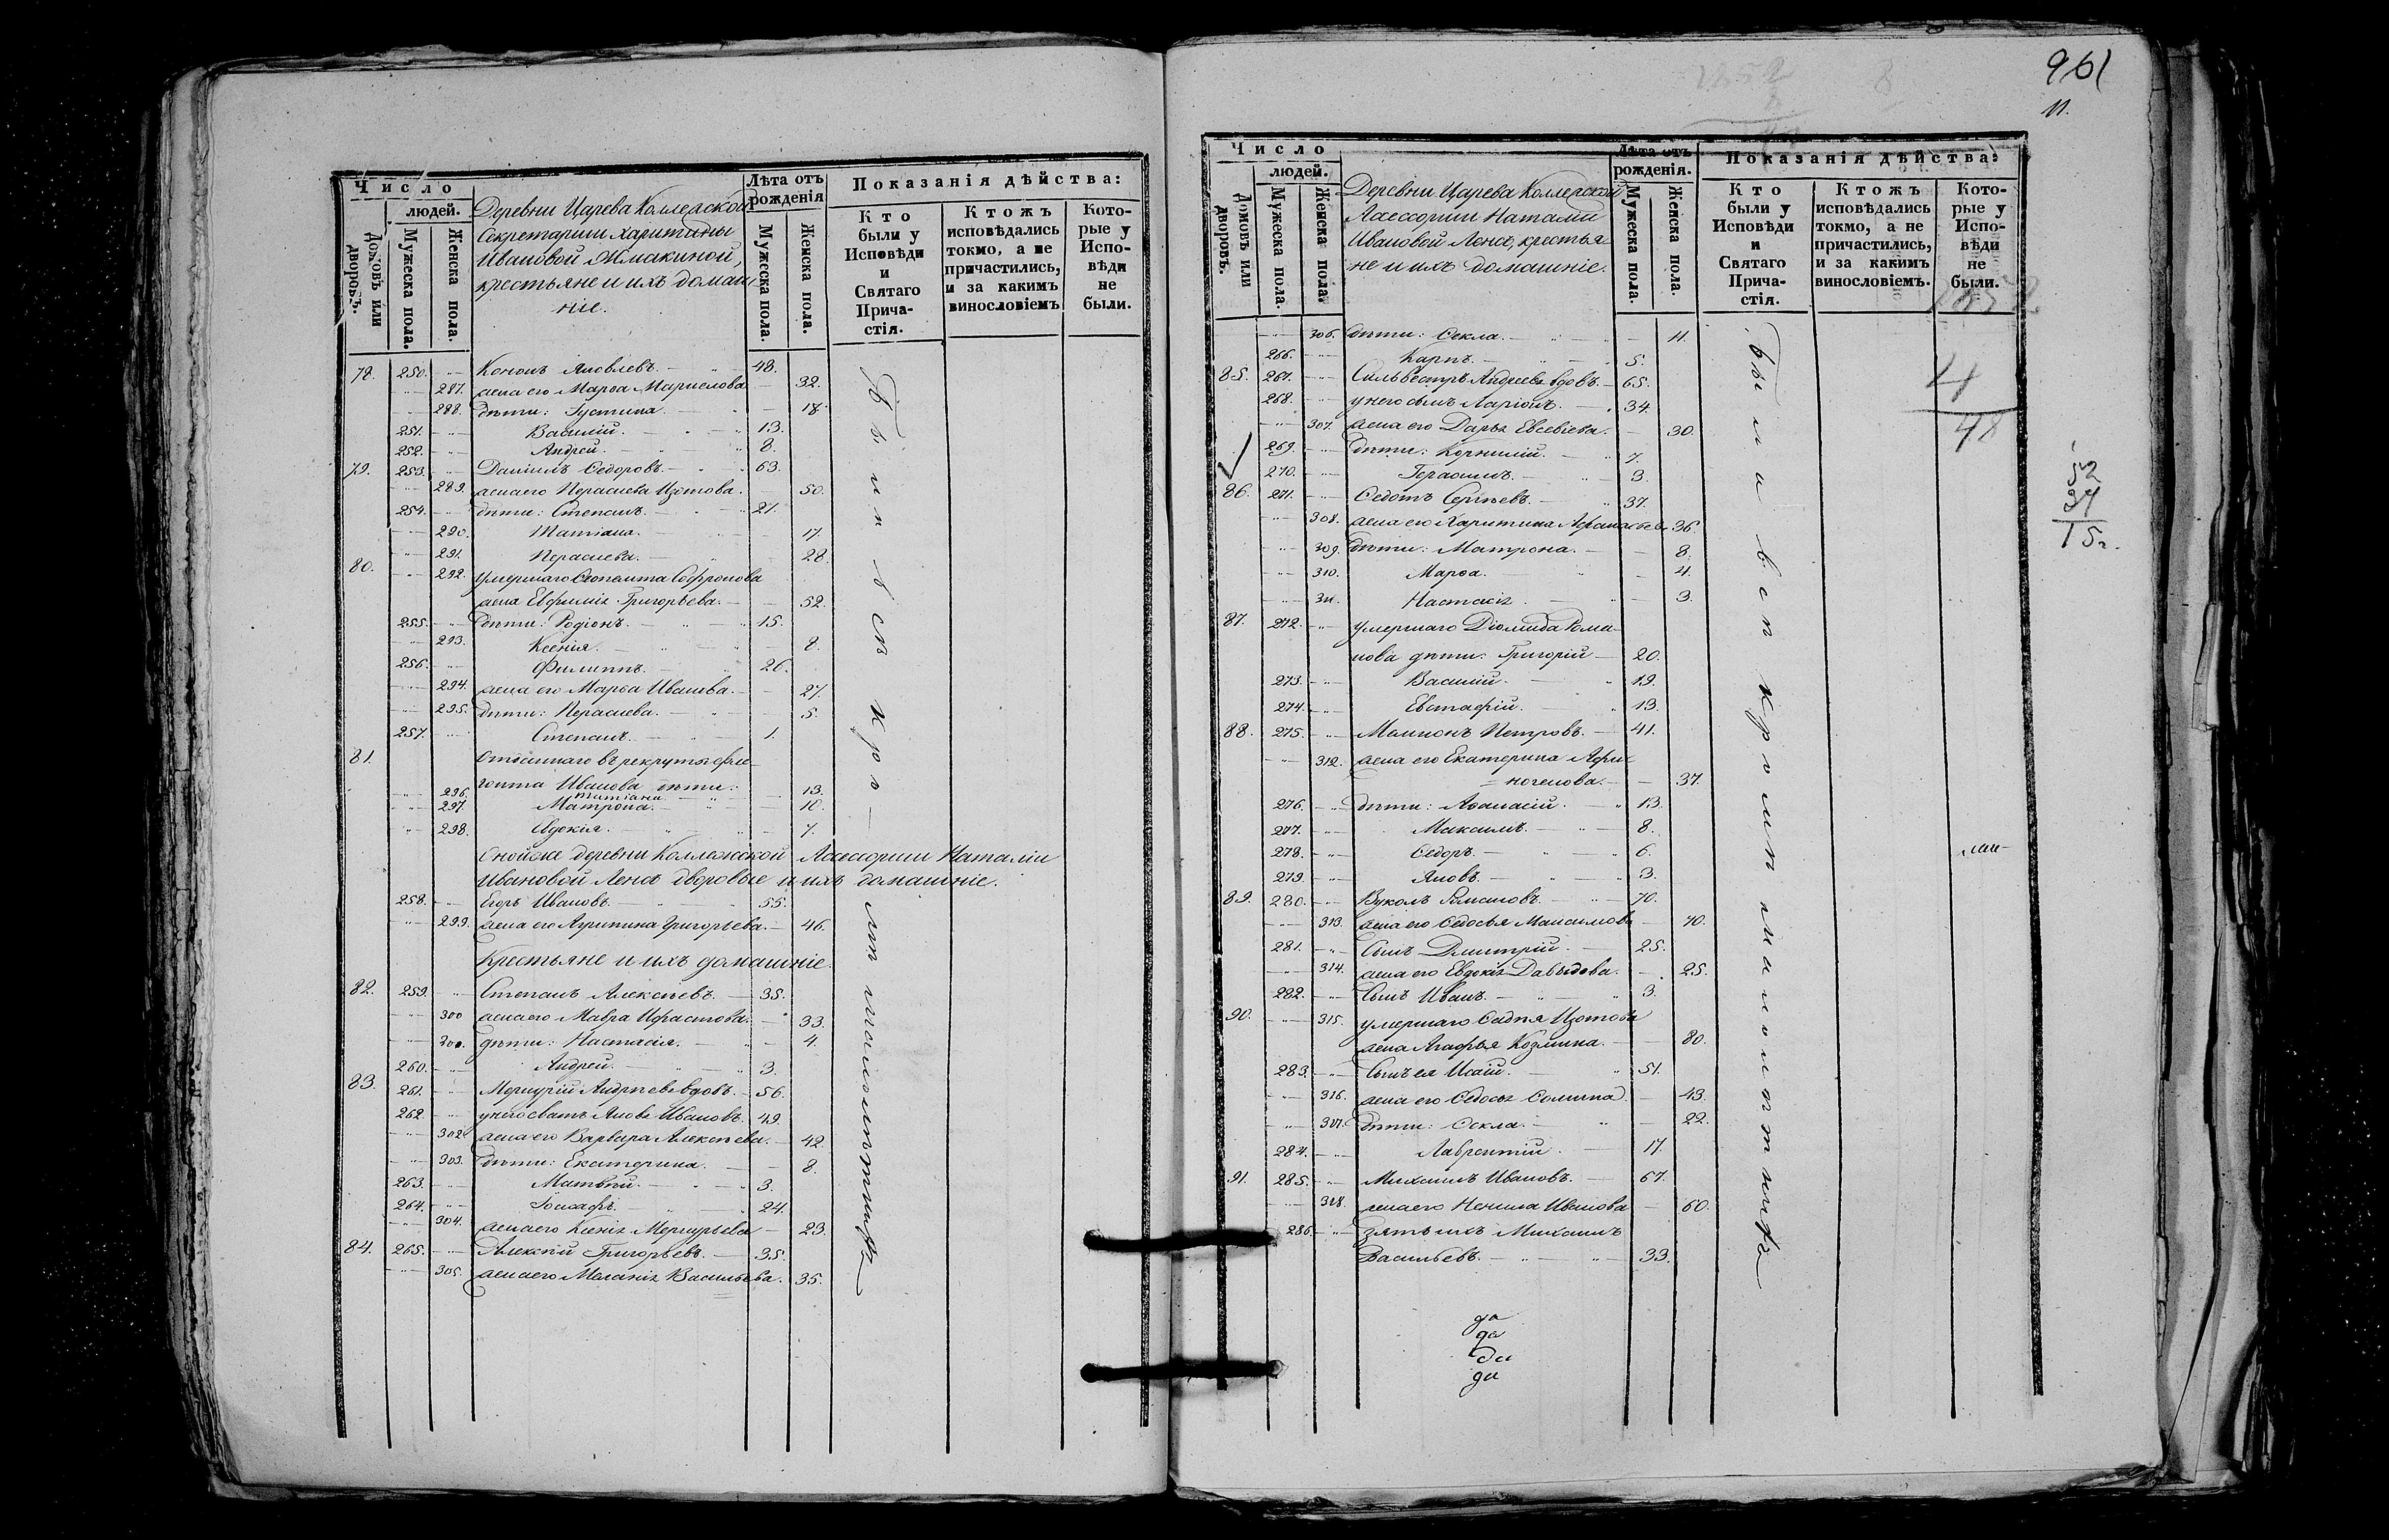 Число
людей.
Домовъ или дворовъ.
Мужеска пола.
Женска пола.
Деревни Царева Коллежской
Секретарши Харитины
Ивановой
крестьяне и ихъ домаш-
ніе.
Лѣта отъ рожденія
Мужеска пола.
Женска пола.
Показанія дѣйства:
Кто были у Исповѣди и Святаго Прича-стія.
Ктожъ исповѣдались токмо, а не причастились, и за какимъ винословіемъ
Кото-рые у Испо-вѣди не были.
78. 250. Кононъ Яковлевъ. 48.
287. жена его Марѳа 32.
288. дѣти: Густина. 18.
251. Василій. 13.
252. Андрей. 8.
79. 253. Даніилъ Ѳедоровъ. 63.
289. жена его Параскева Изотова. 50.
254. дѣти: Степанъ. 21.
290. Татіана. 17.
291. Параскева. 28.
80. 292. умершаго Софронова
жена Евфимія Григорьева. 52.
255. дѣти: Родіонъ. 15.
293. Ксенія. 8.
256. Филиппъ. 26.
294. жена его Марѳа Иванова. 27.
295. дѣти: Параскева. 5.
257. Степанъ. 1.
81. Отданнаго въ рекруты
Иванова дѣти:
296. Татіана 13.
297. Матрона. 10.
298. Евдокія. 7.
Оной же деревни Коллежской Ассесорши Наталіи
Ивановой Ленъ дворовые и ихъ домашніе.
258. Егоръ Ивановъ 55.
299. жена его Агрипина Григорьева. 46.
Крестьяне и ихъ домашніе.
82. 259. Степанъ Алексѣевъ. 35.
300 жена его Мавра 33.
300. дѣти: Настасія. 4.
260. Андрей. 3.
83. 261. Меркурій Андреевъ вдовъ. 56.
262. у него сватъ Яковъ Ивановъ. 49.
302 жена его Варвара Алексѣева. 42.
303. дѣти: Екатерина. 8.
263. Матвѣй. 3.
264. Іоасафъ. 24.
304. жена его Ксенія Меркурьева 23.
84. 265. Алексѣй Григорьевъ. 35.
305. жена его Меланія Васильева. 35.
Были всѣ кро-
мѣ малолѣтнихъ
961
11.
Число
людей.
Домовъ или дворовъ.
Мужеска пола.
Женска пола.
Деревни Царева Коллежской
Ассесорши Наталіи
Ивановой Ленъ, крестья-
не и ихъ домашніе.
Лѣта отъ рожденія.
Мужеска пола.
Женска пола.
Показанія дѣйства:
Кто были у Исповѣди и Святаго Прича-стія.
Ктожъ исповѣдались токмо, а не причастились, и за какимъ винословіемъ.
Кото-рые у Испо-вѣди не были.
306. дѣти: Ѳекла. 11.
266. Карпъ. 5.
85. 267. Сильвестръ Андреевъ вдовъ. 65.
268. у него сынъ Ларіонъ. 34.
307. жена его Дарья Евсевіева. 30.
269. дѣти: Корнилій. 7.
270. Герасимъ. 3.
86. 271. Ѳедотъ Сергѣевъ. 37.
308. жена его Харитина Афанасьева 36.
309. дѣти: Матрона. 8.
310. Марѳа. 4.
311. Настасія. 3.
87. 272. умершаго Діомида Рома-
нова дѣти: Григорій 20.
273. Василій. 19.
274. Евстафій. 13.
88. 275. Петровъ. 41.
312. жена его Екатерина Афи-
ногенова. 37.
276. дѣти: Аѳанасій. 13.
277. Максимъ. 8.
278. Ѳедоръ. 6.
279. Яковъ. 3.
89. 280. Вуколъ 70.
313. жена его Ѳедосья Максимова 70.
281. Сынъ Димитрій. 25.
314. жена его Евдокія Давыдова. 25.
282. Сынъ Иванъ. 3.
90. 315. умершаго Изотова
жена Агафья Козмина. 80.
283. Сынъ ея Исай. 51.
316. жена его Ѳедосья 43.
317. дѣти: Ѳекла. 22.
284. Лаврентій. 17.
91. 285. Михаилъ Ивановъ. 67.
318. жена его Ненила Иванова 60.
286. Зять ихъ Михаилъ
Васильевъ. 33.
да
да
да
да
были всѣ кромѣ малолѣтнихъ
52